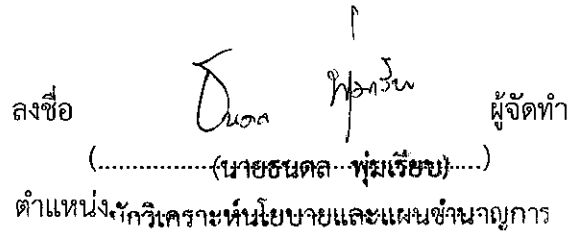 ลงชื่อ ธนดล พุ่มเรียบ ผู้จัดทำ
(นายธนดล พุ่มเรียบ)
ตำแหน่ง นักวิเคราะห์นโยบายและแผนชำนาญการ